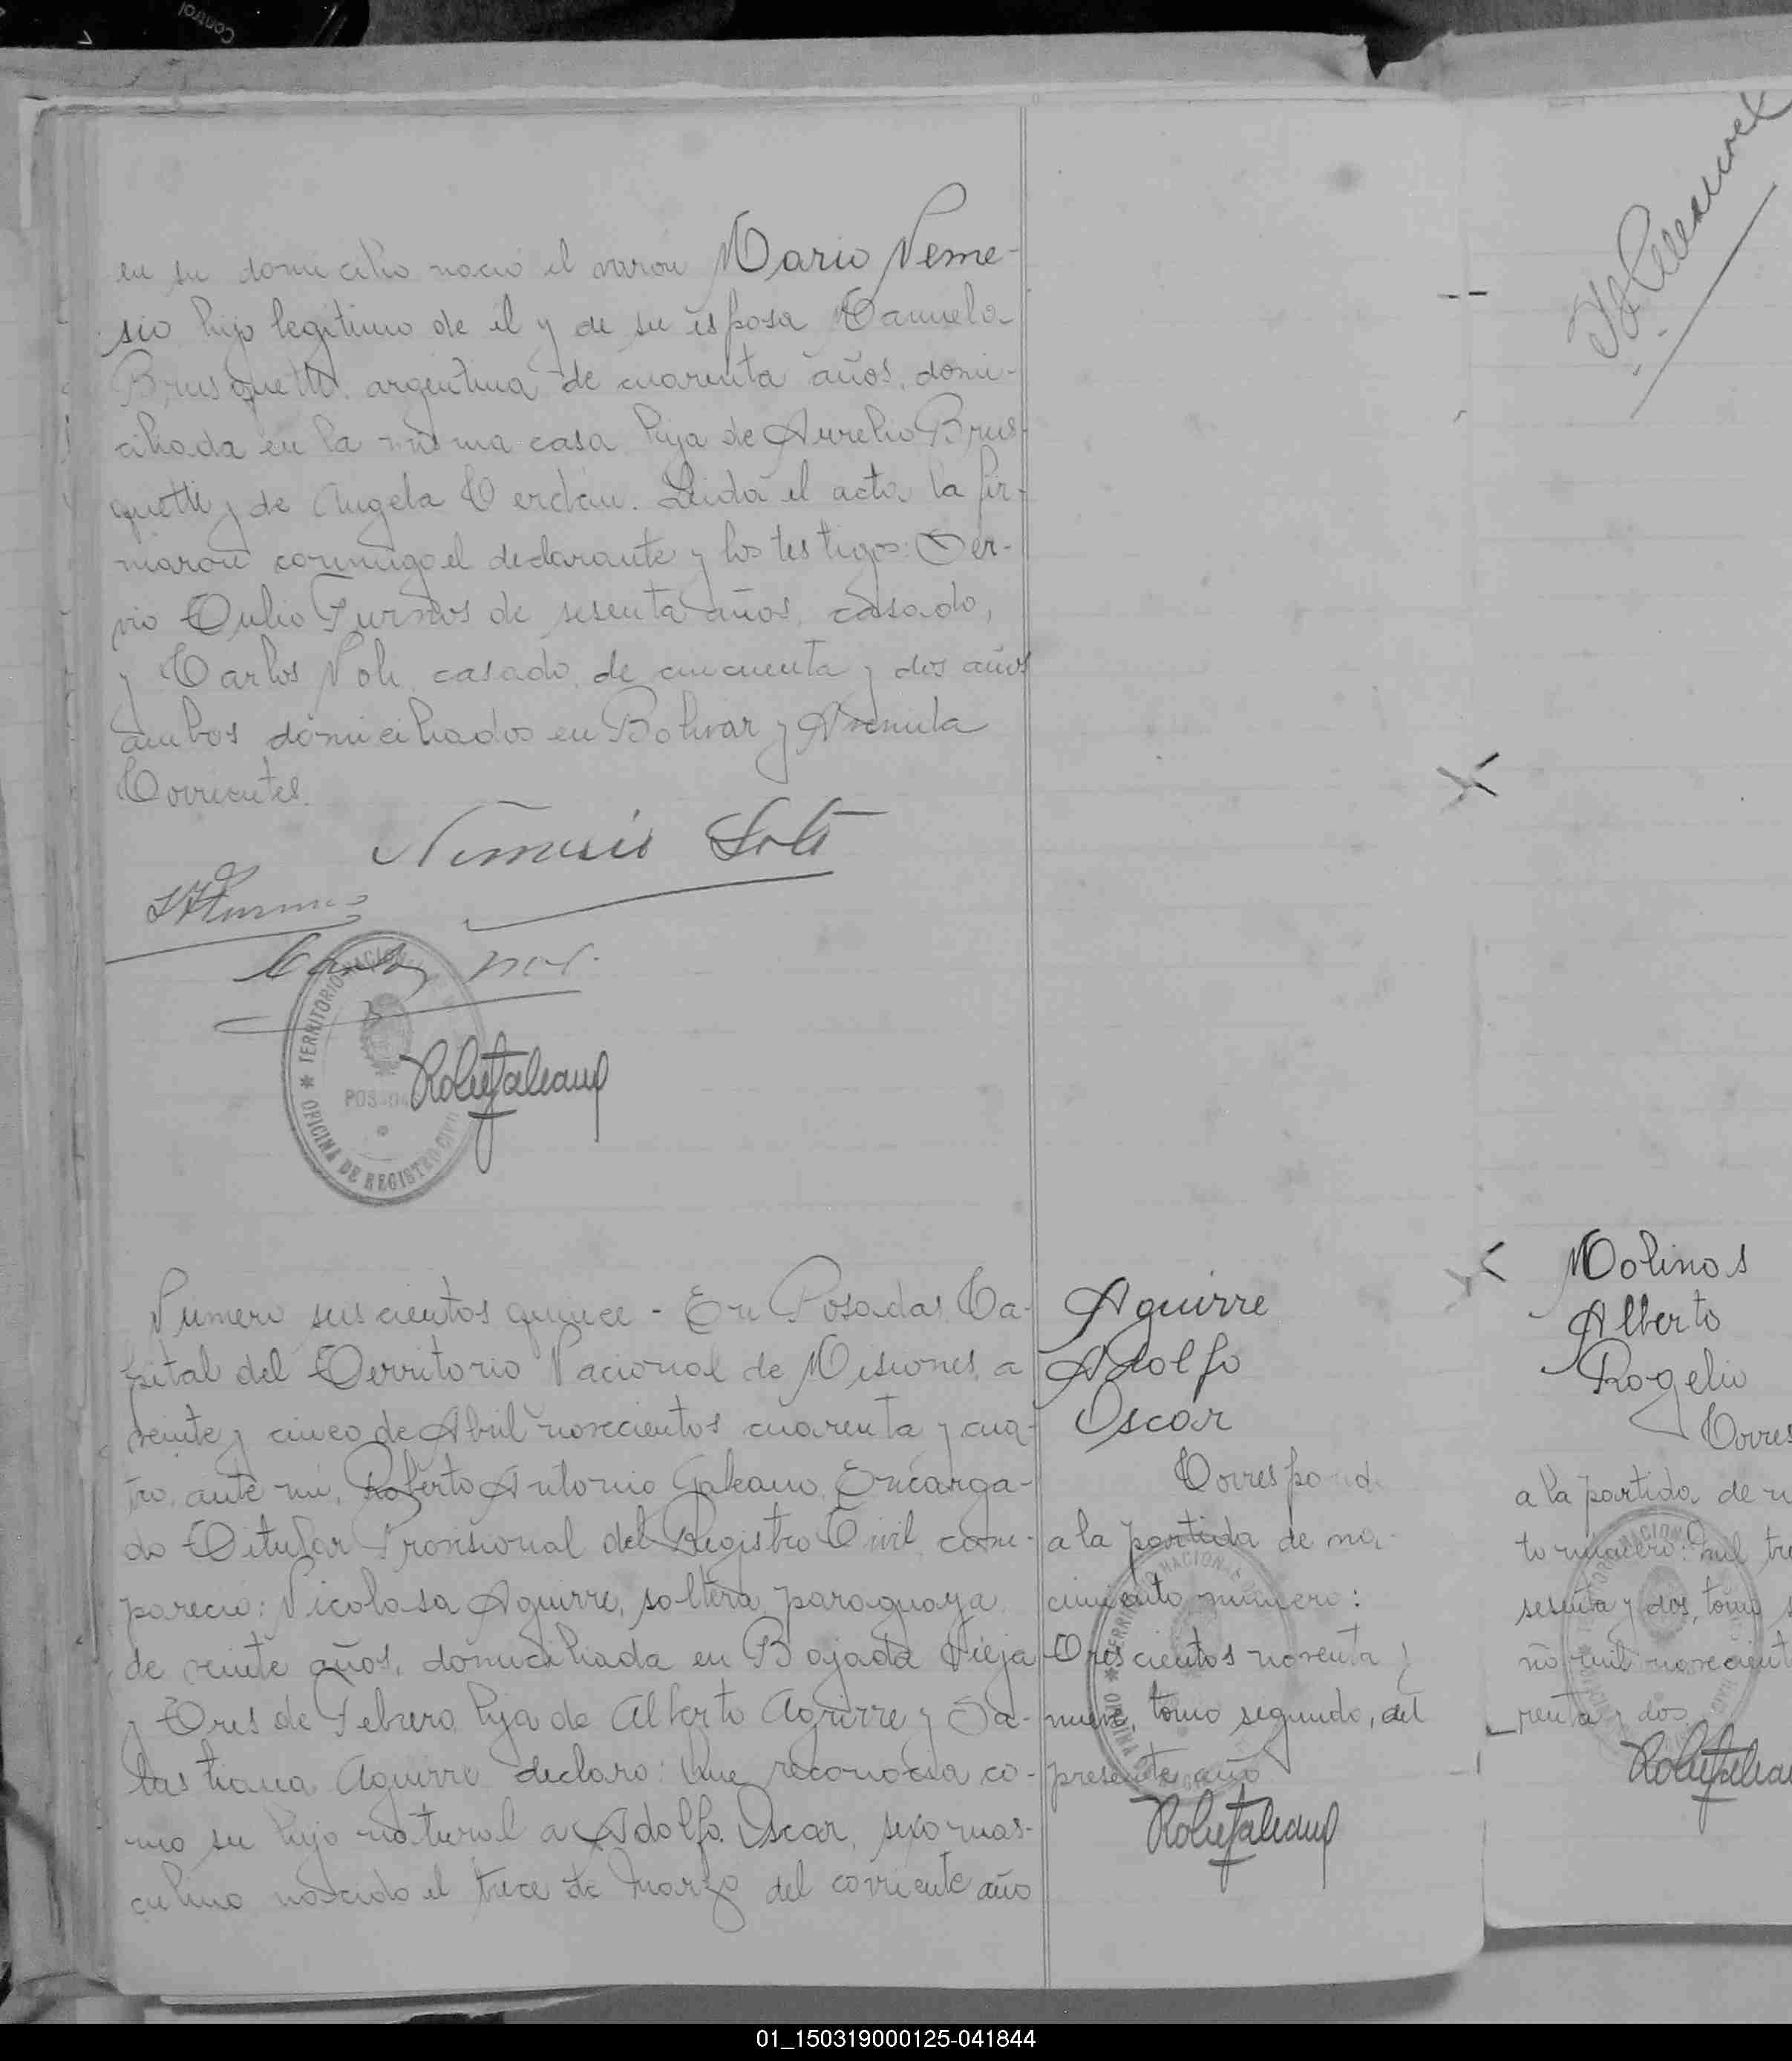 en su domicilio nació el varon Mario Neme-
sio hijo legitimo de el y de su esposa Manuela
Brusquetti argentina de cuarenta años, domi-
ciliada en la misma casa hija de Aurelio Brus-
quetti y de Angela Cerdán. Leida el acta la fir-
maron conmigo el declarante y los testigos: Ser-
vio Tulio Furnos de sesenta años, casado,
y Carlos Noli, casado, de cincuenta y dos años
ambos domiciliados en Bolivar y Avenida
Corrientes.
Nemesio
Carlos
TERRITORIO NACIONAL
POSADAS
OFICINA DE REGISTRO CIVIL
Numero seiscientos quince - En Posadas Ca-
pital del Territorio Nacional de Misiones, a
veinte y cinco de Abril novecientos cuarenta y cua-
tro, ante mi, Roberto Antonio Galeano, Encarga-
do Titular Provisional del Registro Civil, com-
pareció: Nicolasa Aguirre, soltera, paraguaya
de veinte años, domiciliada en Bajada Vieja
y Tres de Febrero, hija de Alberto Aguirre y Se-
bastiana Aguirre declaro: Que reconocia co-
mo su hijo natural a Adolfo Oscar, sexo mas-
culino nacido el trece de Marzo del corriente año
Aguirre
Adolfo
Oscar
Corresponde
a la partida de na-
cimiento numero:
Trescientos noventa y
nueve, tomo segundo, del
presente año
Molinos
Alberto
Rogelio
Corres
a la partida de n
to numero: mil tre
sesenta y dos, tomo s
ño mil novecient
renta y dos
01_150319000125-041844